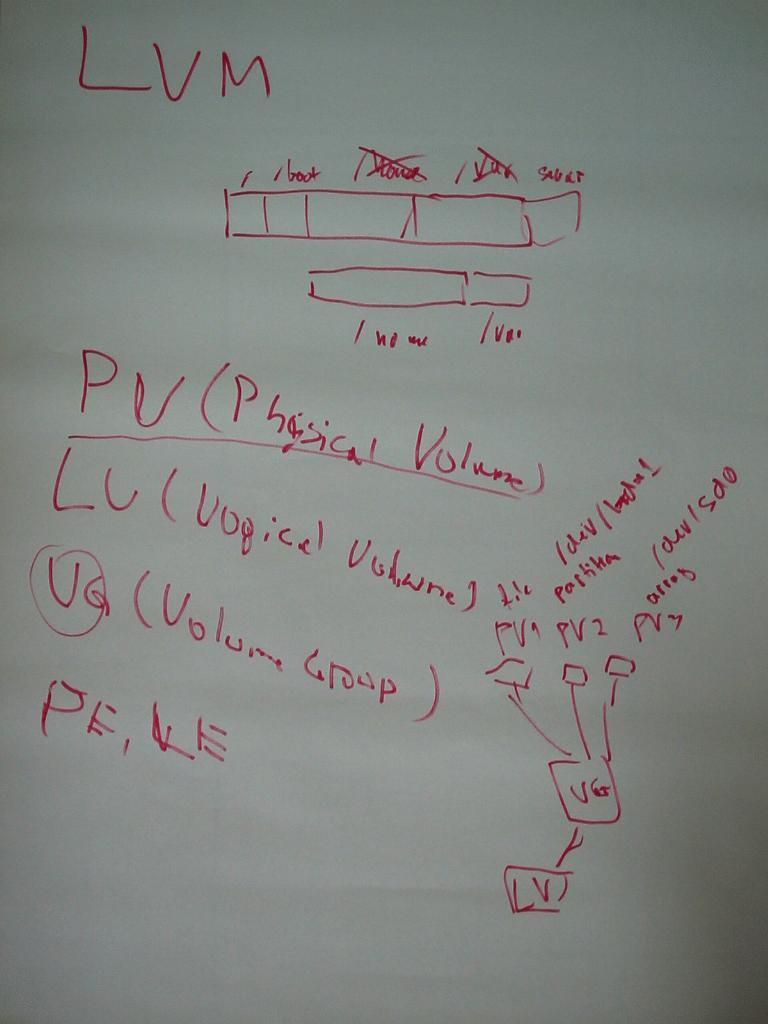 LVM
/ /boot /home /var
/home /var
PV (Physical Volume)
LV (Logical Volume)
VG (Volume Group)
PE, LE
file partition array /dev/sda
PV1 PV2 PV3
VG
LV